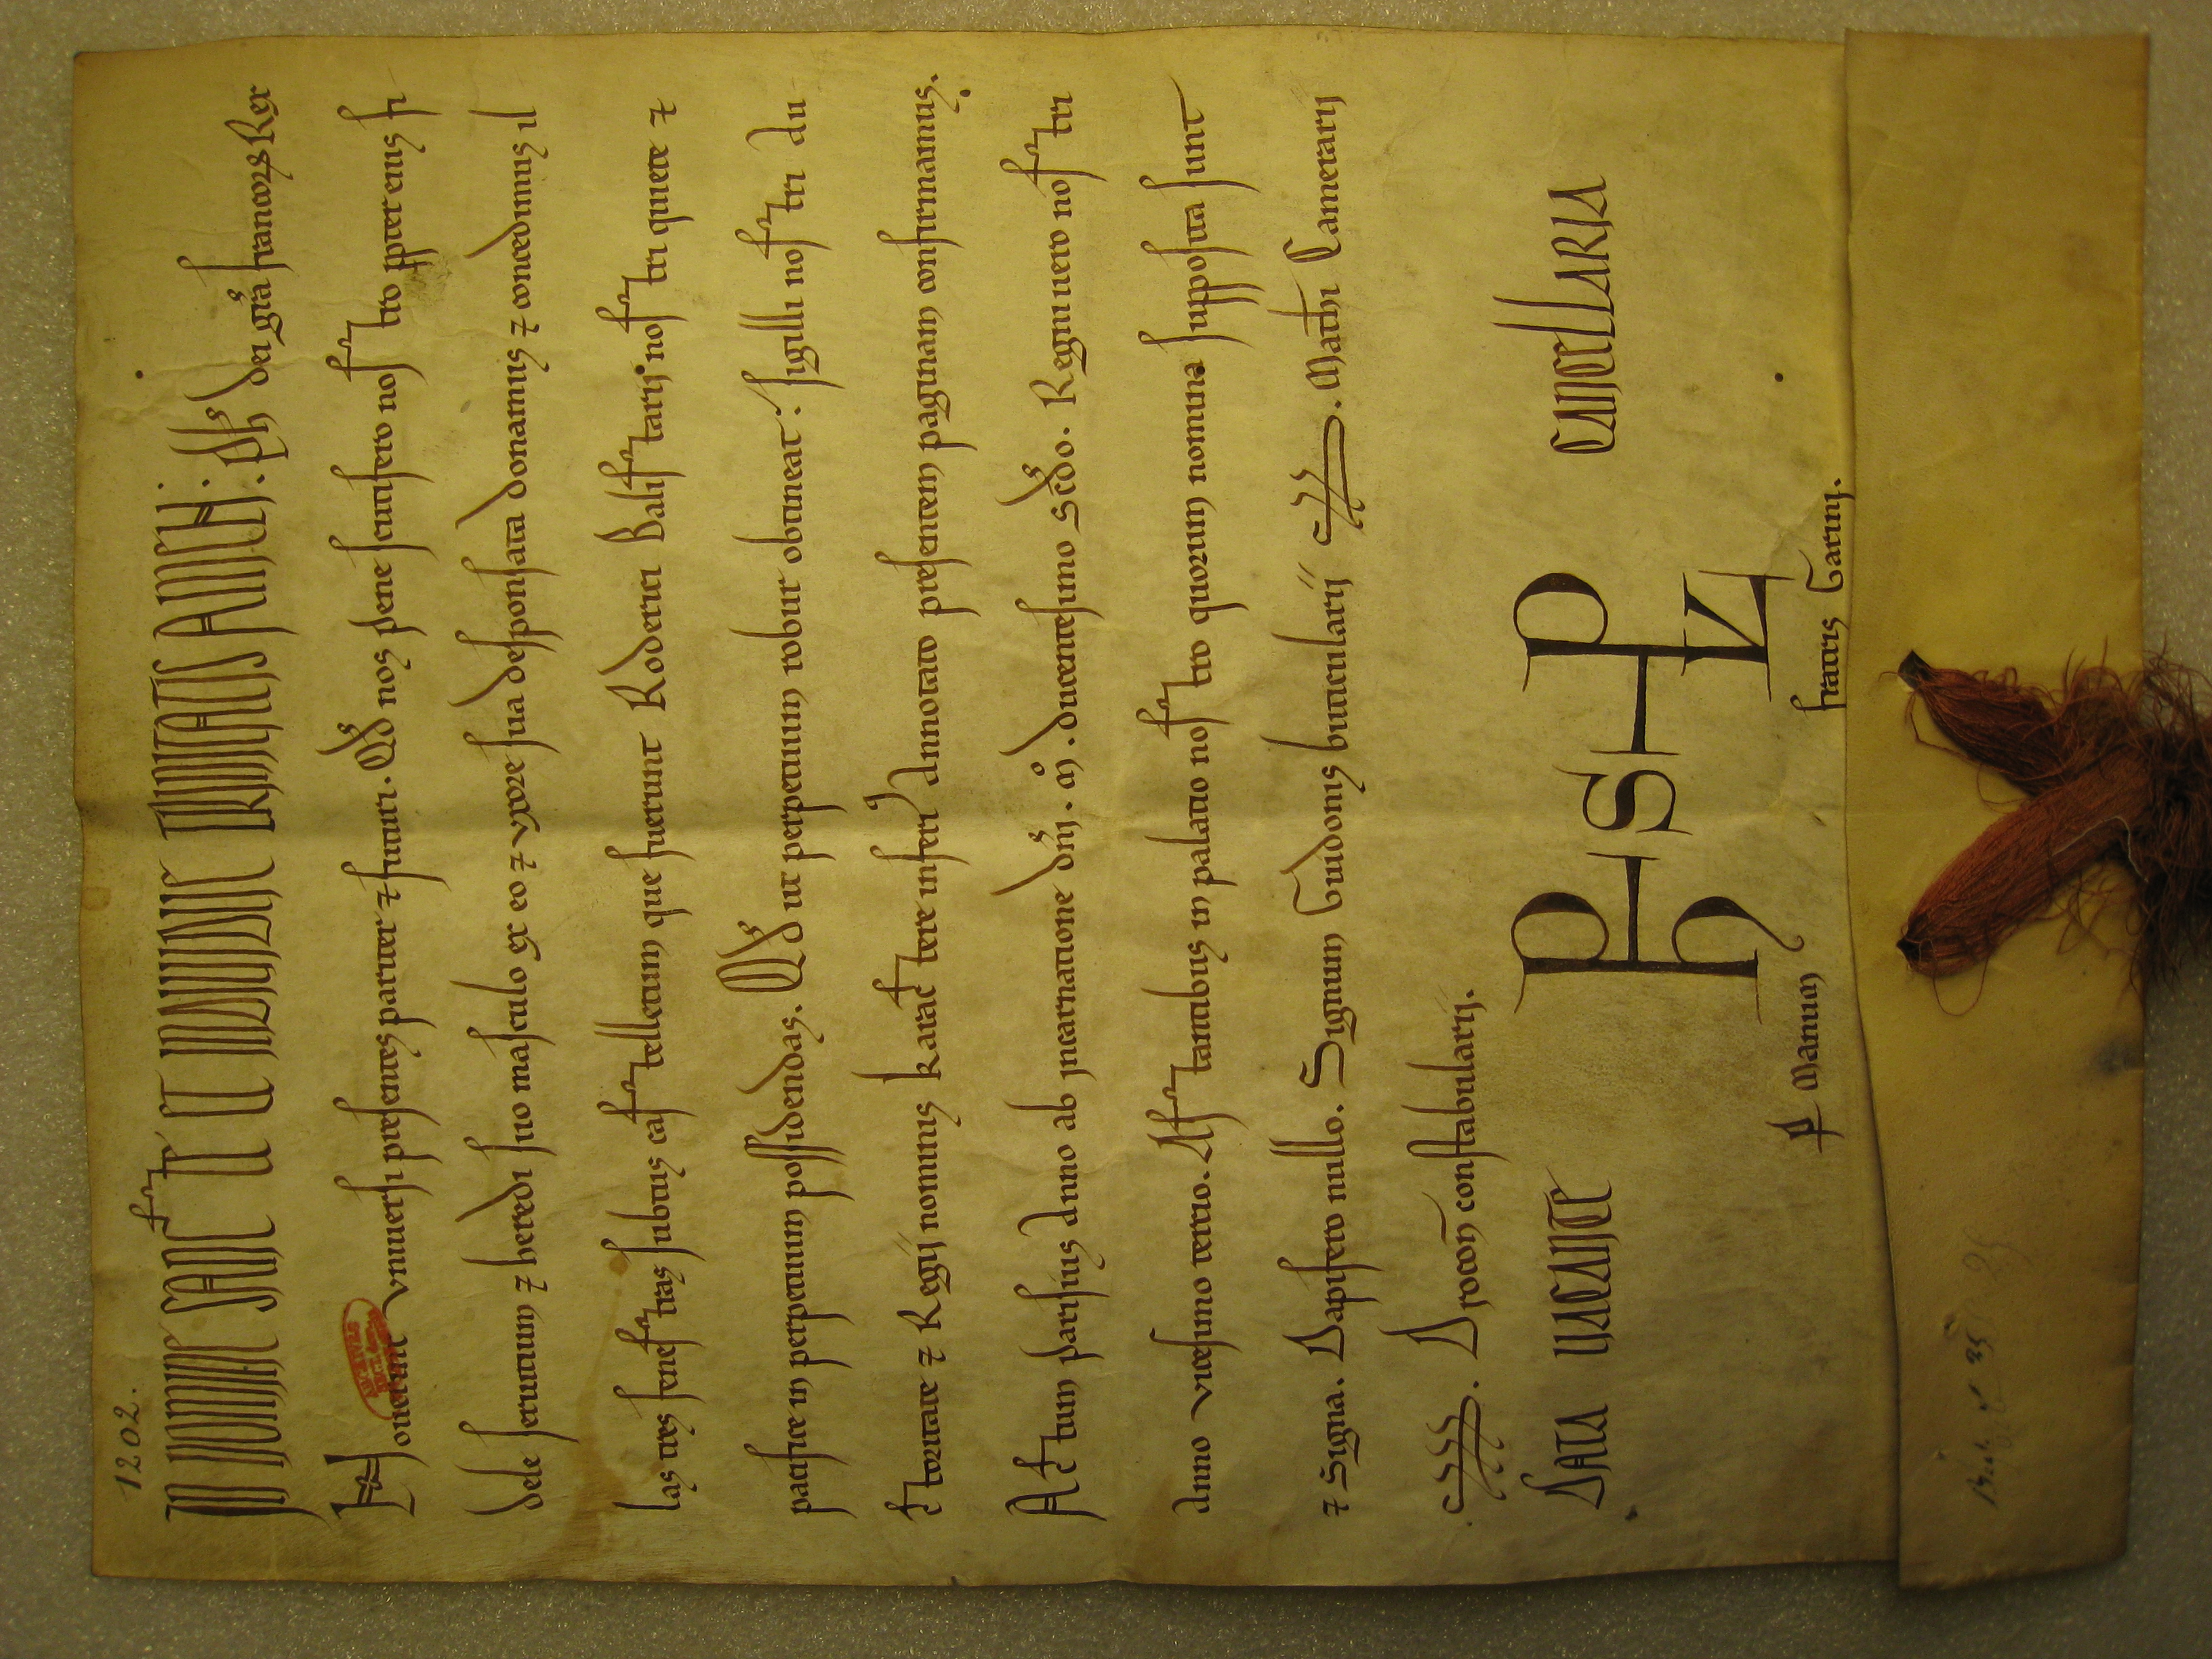 1202.
IN NOMINE SANCTE ET INDIVIDUE TRINITATIS AMEN. Ph's dei gr̃a francoꝝ Rex
Nouerint vniuersi presentes pariter ⁊ futuri. Qd' nos plene seruisero nostro ppter eius fi
dele seruitium ⁊ heredi suo masculo ex eo ⁊ vxore sua desponsata donamus ⁊ concedimus il
las tres fenestras subtus castelletum que fuerunt Roderici Balistarij nostri quiete ⁊
pacifice in perpetuum possidendas. Qd' ut perpetuum robur obtineat: sigilli nostri au
ctoritate ⁊ Regij nominis karactere inferi' annotato presentem paginam confirmamus.
Actum parisius anno ab incarnatione dñi. M̊. ducentesimo scd̃o. Regni uero nostri
anno vicesimo tercio. Astantibus in palatio nostro quorum nomina supposita sunt
⁊ signa. Dapifero nullo. Signum Guidonis buticularij. S. Math̃i Camerarij
S. Drocon̄ constabularij.
DATA VACANTE CANCELLARIA
ꝑ Manum fratris Garini.